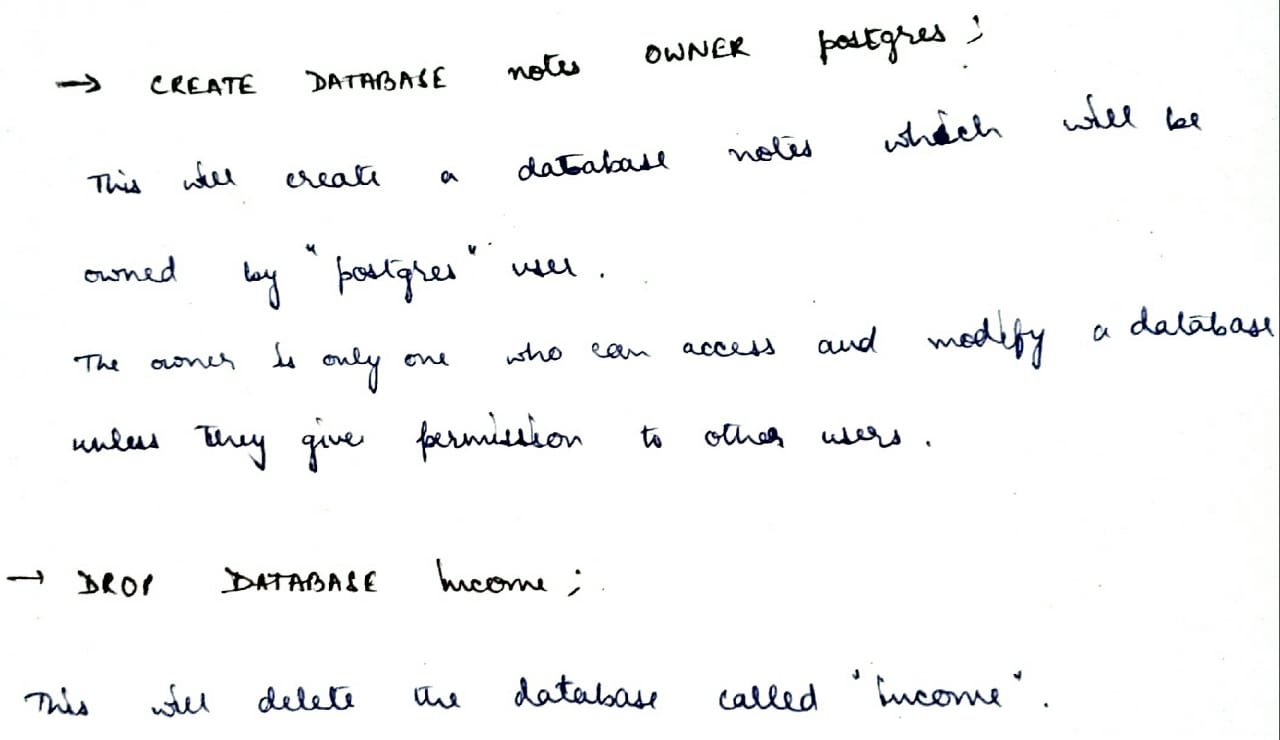 → CREATE DATABASE notes OWNER postgres;
This will create a database notes which will be
owned by "postgres" user.
The owner is only one who can access and modify a database
unless they give permission to other users.
→ DROP DATABASE income;
This will delete the database called "income".